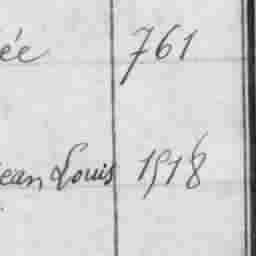 ée 761
ean Louis 1518